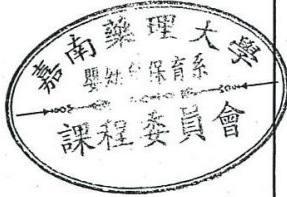 嘉南藥理大學
嬰幼兒保育系
課程委員會